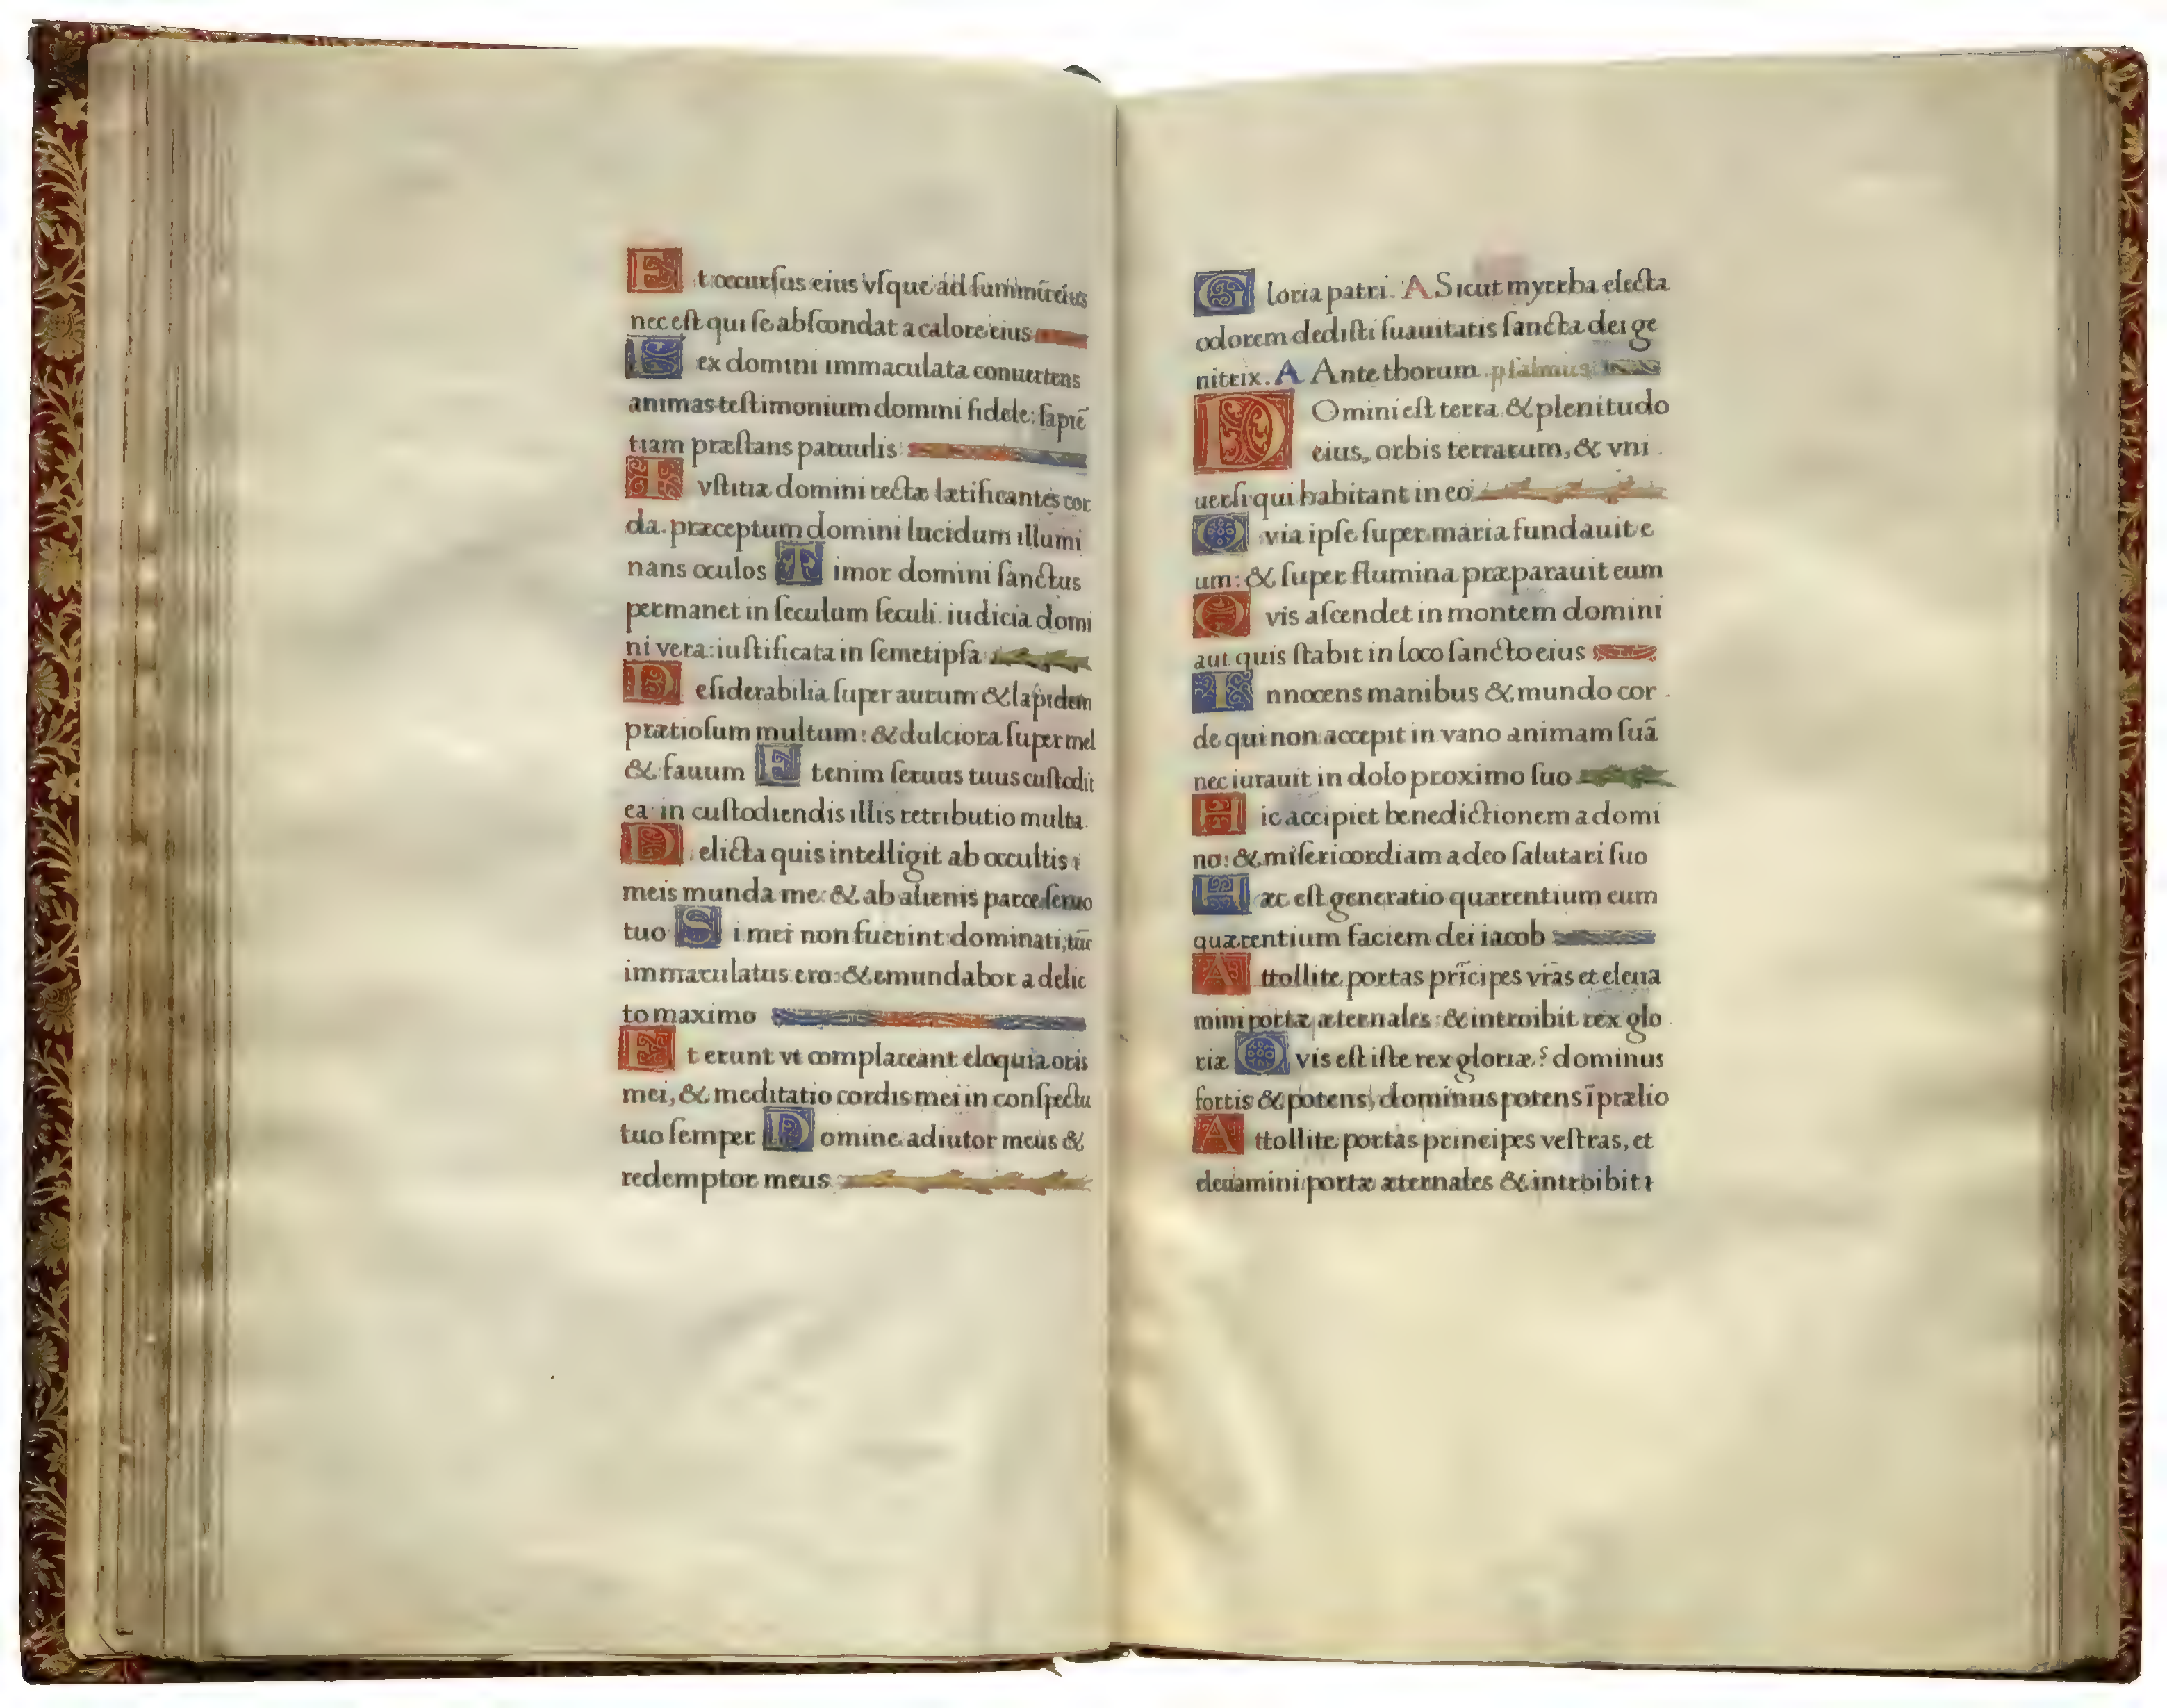 Et occurſus eius vſque ad ſummū eius
nec eſt qui ſe abſcondat a calore eius
Lex domini immaculata conuertens
animas teſtimonium domini fidele: ſapiē
tiam præſtans paruulis
Ivſtitiæ domini rectæ lætificantes cor
da. præceptum domini lucidum illumi
nans oculos Timor domini ſanctus
permanet in ſeculum ſeculi. iudicia domi
ni vera: iuſtificata in ſemetipſa
Deſiderabilia ſuper aurum & lapidem
prætioſum multum: & dulciora ſuper mel
& fauum Etenim ſeruus tuus cuſtodit
ea in cuſtodiendis illis retributio multa.
Delicta quis intelligit ab occultis
meis munda me: & ab alienis parce ſeruo
tuo Si mei non fuerint dominati, tūc
immaculatus ero: & emundabor a delic
to maximo
Et erunt vt complaceant eloquia oris
mei, & meditatio cordis mei in conſpectu
tuo ſemper Domine adiutor meus &
redemptor meus
Gloria patri. A Sicut myrrha electa
odorem dediſti ſuauitatis ſancta dei ge
nitrix. A Ante thorum. pſalmus
DOmini eſt terra & plenitudo
eius, orbis terrarum, & vni
uerſi qui habitant in eo
Qvia ipſe ſuper maria fundauit e
um: & ſuper flumina præparauit eum
Qvis aſcendet in montem domini
aut quis ſtabit in loco ſancto eius
Innocens manibus & mundo cor
de qui non accepit in vano animam ſuā
nec iurauit in dolo proximo ſuo
Hic accipiet benedictionem a domi
no: & miſericordiam a deo ſalutari ſuo
Hæc eſt generatio quærentium eum
quærentium faciem dei iacob
Attollite portas prīcipes vr̄as et eleua
mini portæ æternales & introibit rex glo
riæ Qvis eſt iſte rex gloriæ? dominus
fortis & potens, dominus potens ī prælio
Attollite portas principes veſtras, et
eleuamini portæ æternales & introibit